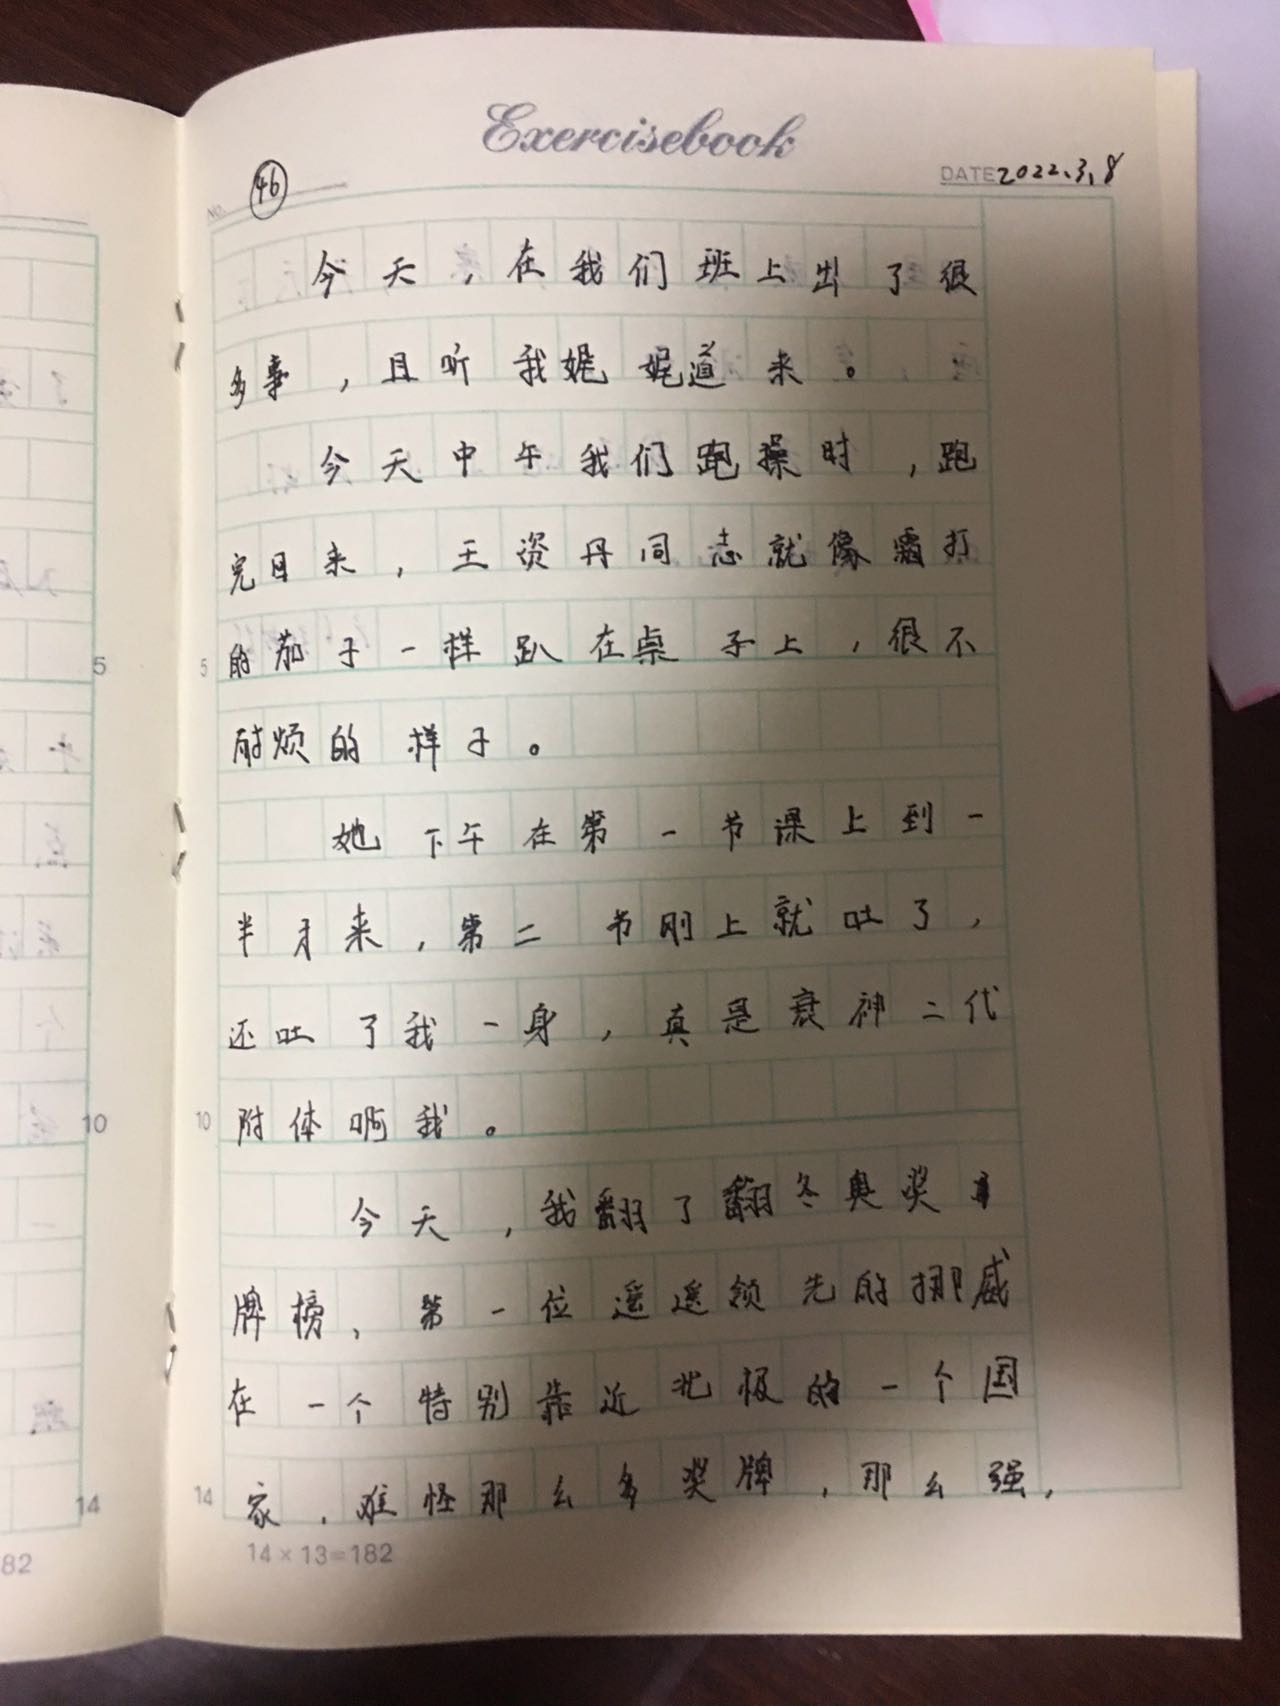 Exercisebook
No. 46
DATE 2022.3.8
今天，在我们班上出了很
多事，且听我娓娓道来。
今天中午我们跑操时，跑
完回来，王资丹同志就像霜打
的茄子一样趴在桌子上，很不
耐烦的样子。
她下午在第一节课上到一
半才来，第二节刚上就吐了，
还吐了我一身，真是衰神二代
附体啊我。
今天，我翻了翻冬奥奖
牌榜，第一位遥遥领先的挪威
在一个特别靠近北极的一个国
家，难怪那么多奖牌，那么强，
5
10
14
14×13=182
5
10
14
82